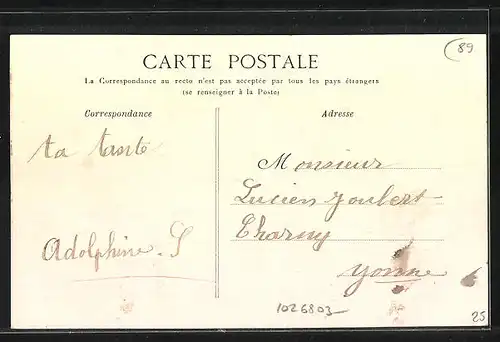 89
CARTE POSTALE
La Correspondance au recto n'est pas acceptée par tous les pays étrangers
(se renseigner à la Poste)
Correspondance
Adresse
ta tante
Adolphine. S
Monsieur
Lucien Joubert
Charny
Yonne
1026803
25